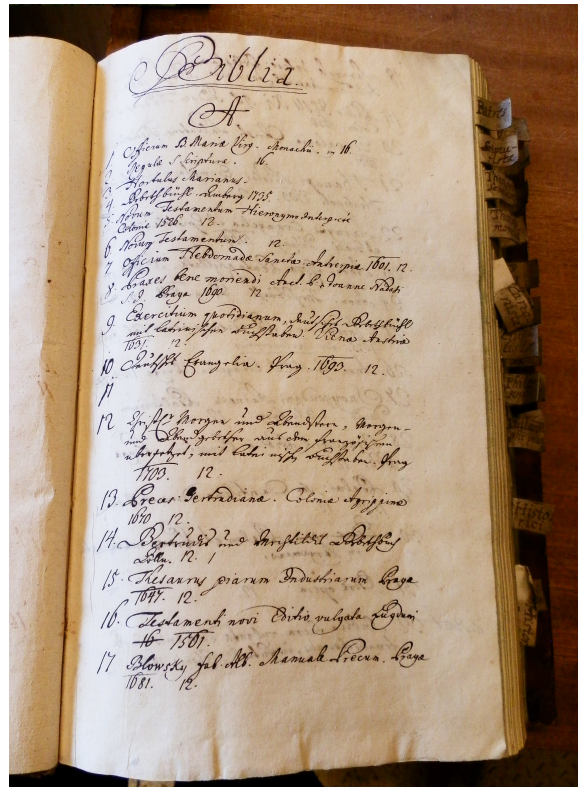 Biblia.
A
1 Officium B. Mariæ Virg. Monachii. 16.
2 Regulæ S Scripturæ. 16.
3 Hortulus Marianus.
4 Bethbüchl. Amberg 1735.
5 Novum Testamentum Hieronymo Interprete
Coloniæ 1526. 12.
6 Novum Testamentum. 12.
7 Officium Hebdomadæ Sanctæ. Antverpiæ 1601. 12.
8. Praxes bene moriendi Auct. P. Joanne Nadasi
S. J. Pragæ 1690. 12
9. Exercitium quotidianum, deutsches Bethbüchl
mit lateinischen Buchstaben. Viennæ Austriæ
1631. 12.
10 Deutsche Evangelia. Prag. 1693. 12.
11
12 Morgen und Abendstern, Morgen-
und Abendgebether aus dem französischen
übersetzet, mit lateinischen Buchstaben. Prag
1703. 12.
13. Preces Gertrudianæ. Coloniæ Agrippinæ
1670 12.
14. Gertrudis und Mechtildis Bethbuch
Cölln. 12.
15. Thesaurus piarum Industriarum Pragæ
1647. 12.
16. Testamenti novi Editio vulgata Lugduni
16 1561.
17 Blowsky Manuale Precum. Pragæ
1681. 12.
Histo
rici